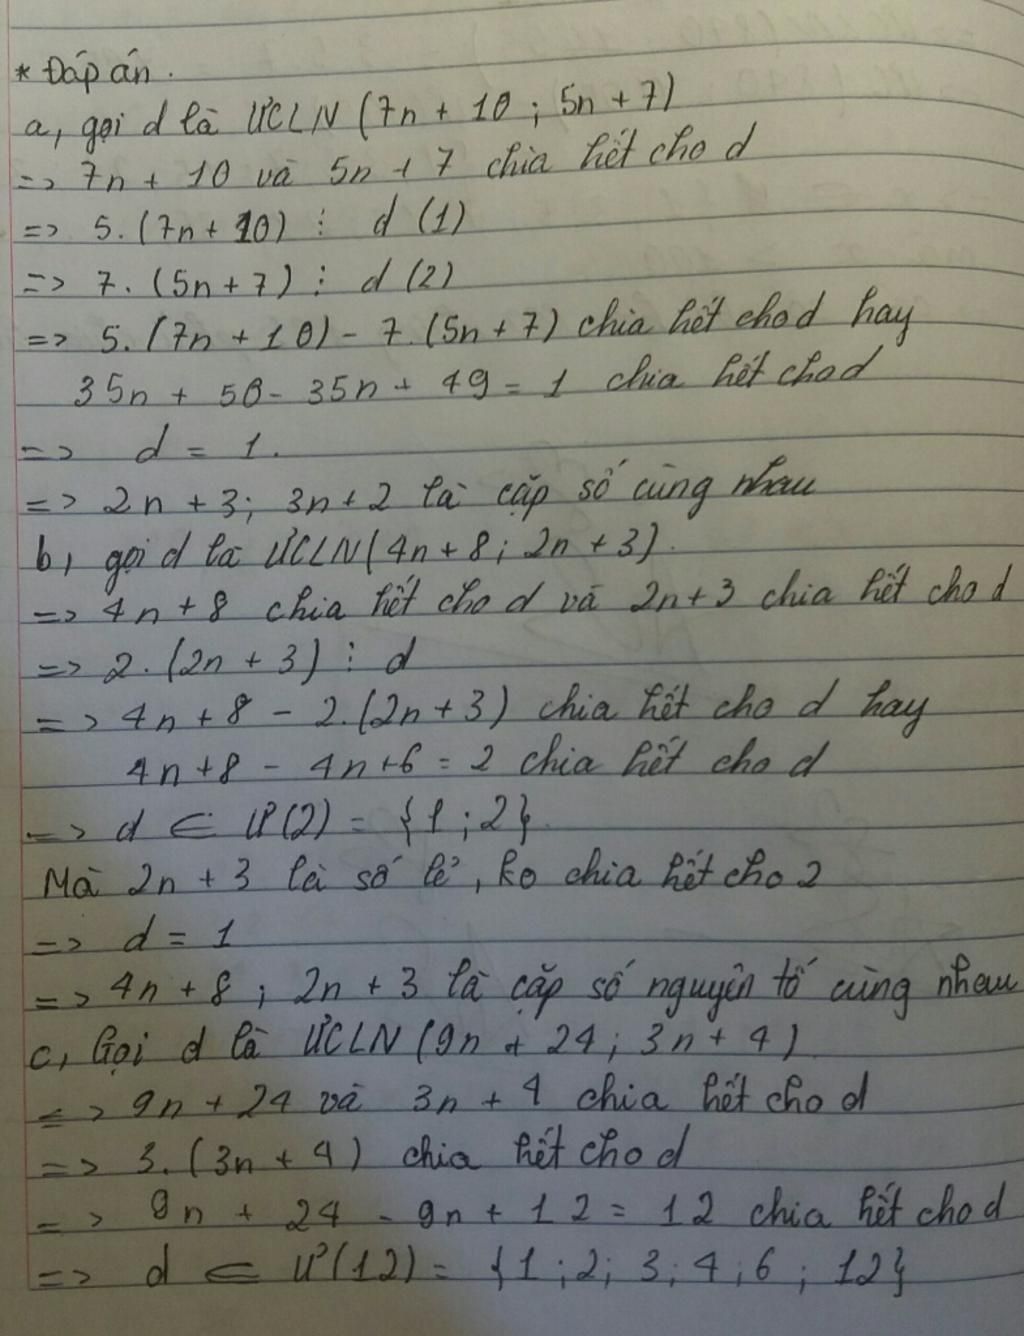 * Đáp án.
a, gọi d là ƯCLN (7n + 10 ; 5n + 7)
=> 7n + 10 và 5n + 7 chia hết cho d
=> 5. (7n + 10) ⋮ d (1)
=> 7. (5n + 7) ⋮ d (2)
=> 5. (7n + 10) - 7. (5n + 7) chia hết cho d hay
35n + 50 - 35n + 49 = 1 chia hết cho d
=> d = 1.
=> 2n + 3; 3n + 2 là cặp số cùng nhau
b, gọi d là ƯCLN (4n + 8 ; 2n + 3).
=> 4n + 8 chia hết cho d và 2n + 3 chia hết cho d
=> 2. (2n + 3) ⋮ d
=> 4n + 8 - 2. (2n + 3) chia hết cho d hay
4n + 8 - 4n + 6 = 2 chia hết cho d
=> d ∈ Ư(2) = {1 ; 2}
Mà 2n + 3 là số lẻ, ko chia hết cho 2
=> d = 1
=> 4n + 8 ; 2n + 3 là cặp số nguyên tố cùng nhau
c, Gọi d là ƯCLN (9n + 24 ; 3n + 4)
=> 9n + 24 và 3n + 4 chia hết cho d
=> 3. (3n + 4) chia hết cho d
=> 9n + 24 - 9n + 12 = 12 chia hết cho d
=> d ∈ Ư(12) = {1 ; 2; 3; 4; 6; 12}